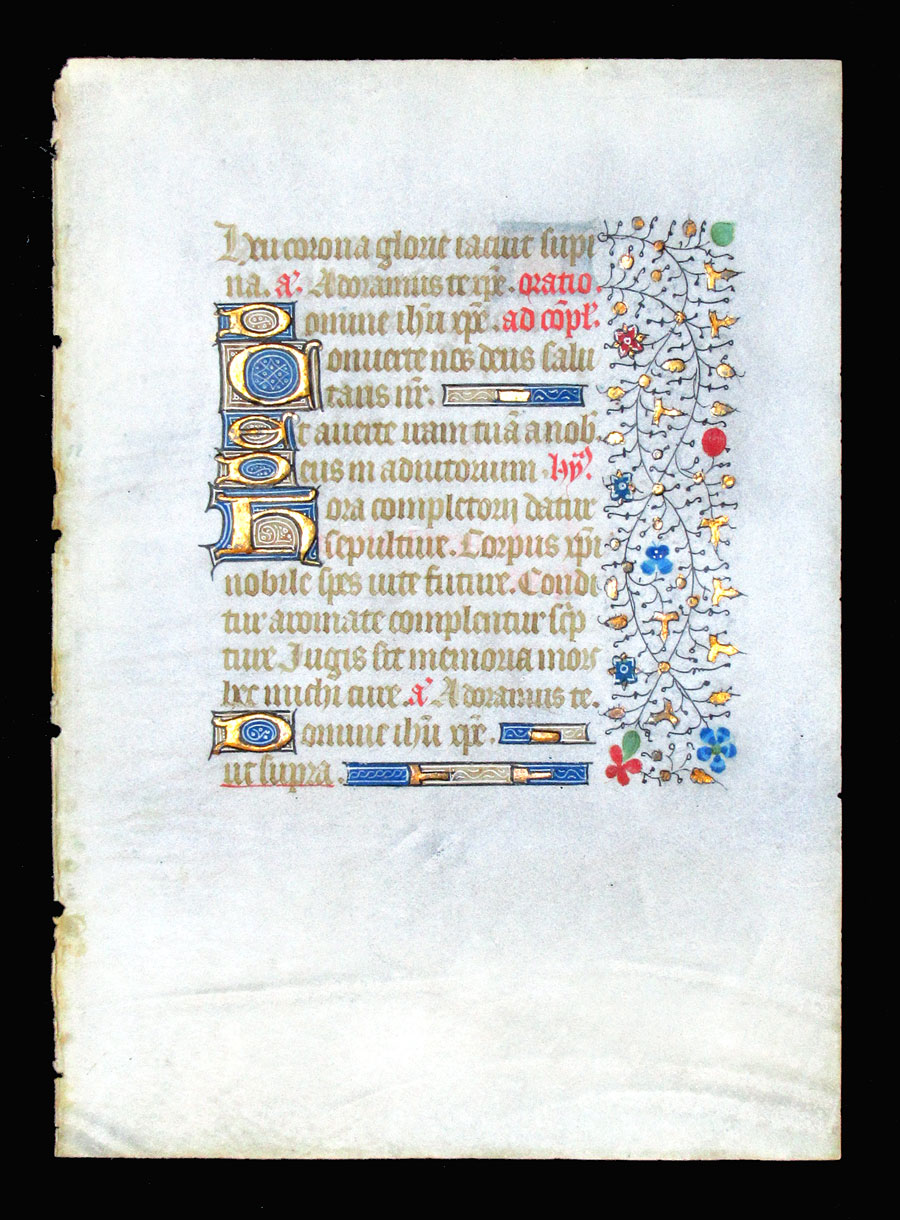 Heu corona glorie iacuit supi
na. a᷎. Adoramus te xp̄e. oratio.
Domine ihū xp̄e. ad cōpl̄.
Conuerte nos deus salu
taris nr̄.
Et auerte iram tuā a nob̄.
Deus in adiutorium. hy᷎
Hora completorij datur
sepulture. Corpus xp̄i
nobile spes uite future. Condi
tur aromate complentur sc̄ip
ture Jugis sit memoria mors
hec michi cure. a᷎ Adoramus te.
Domine ihū xp̄e.
ut supra.